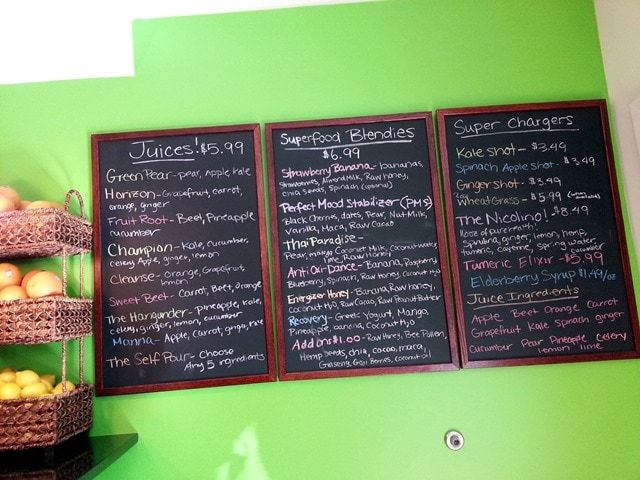 Juices! $5.99
Green Pear - pear, Apple, Kale
Horizon - Grapefruit, carrot,
orange, ginger
Fruit Root - Beet, Pineapple
cucumber
Champion - Kale, cucumber,
celery, Apple, ginger, lemon
Cleanse - Orange, Grapefruit,
lemon
Sweet Beet - Carrot, Beet, Orange
The Hangunder - Pineapple, Kale,
Celery, ginger, lemon, cucumber
Manna - Apple, Carrot, ginger,
The Self Pour - choose
Any 5 ingredients
Superfood Blendies
$6.99
Strawberry Banana - bananas,
Strawberries, Almond Milk, Raw honey,
chia Seeds, Spinach (optional)
Perfect Mood Stabilizer (PMS)
Black Cherries, dates, Pear, Nut Milk,
Vanilla, Maca, Raw Cacao
Thai Paradise -
Pear, mango, Coconut Milk, Coconut water,
lime, Raw Honey
Anti Oxi-Dance - Banana, Raspberry
Blueberry, Spinach, Raw Honey, Coconut H2O
Energizer Honey - Banana, Raw Honey,
Coconut H2O, Raw Cacao, Raw Peanut Butter
Recovery - Greek Yogurt, Mango,
Pineapple, banana, Coconut H2O
Add ons $1.00 - Raw Honey, Bee Pollen,
Hemp Seeds, chia, cacao, maca,
Ginseng, Goji Berries, coconut oil
Super Chargers
Kale shot - $3.49
Spinach Apple shot - $3.49
Ginger shot - $3.49
Wheat Grass - $5.99 (when available)
The Nicolino! $8.49
16oz of pure health!
Spirulina, ginger, lemon, hemp,
tumeric, cayenne, Spring water
cucumber
Tumeric Elixir - $5.99
Elderberry Syrup $1.49/oz
Juice Ingredients
Apple Beet Orange Carrot
Grapefruit Kale Spinach ginger
Cucumber Pear Pineapple celery
lemon lime